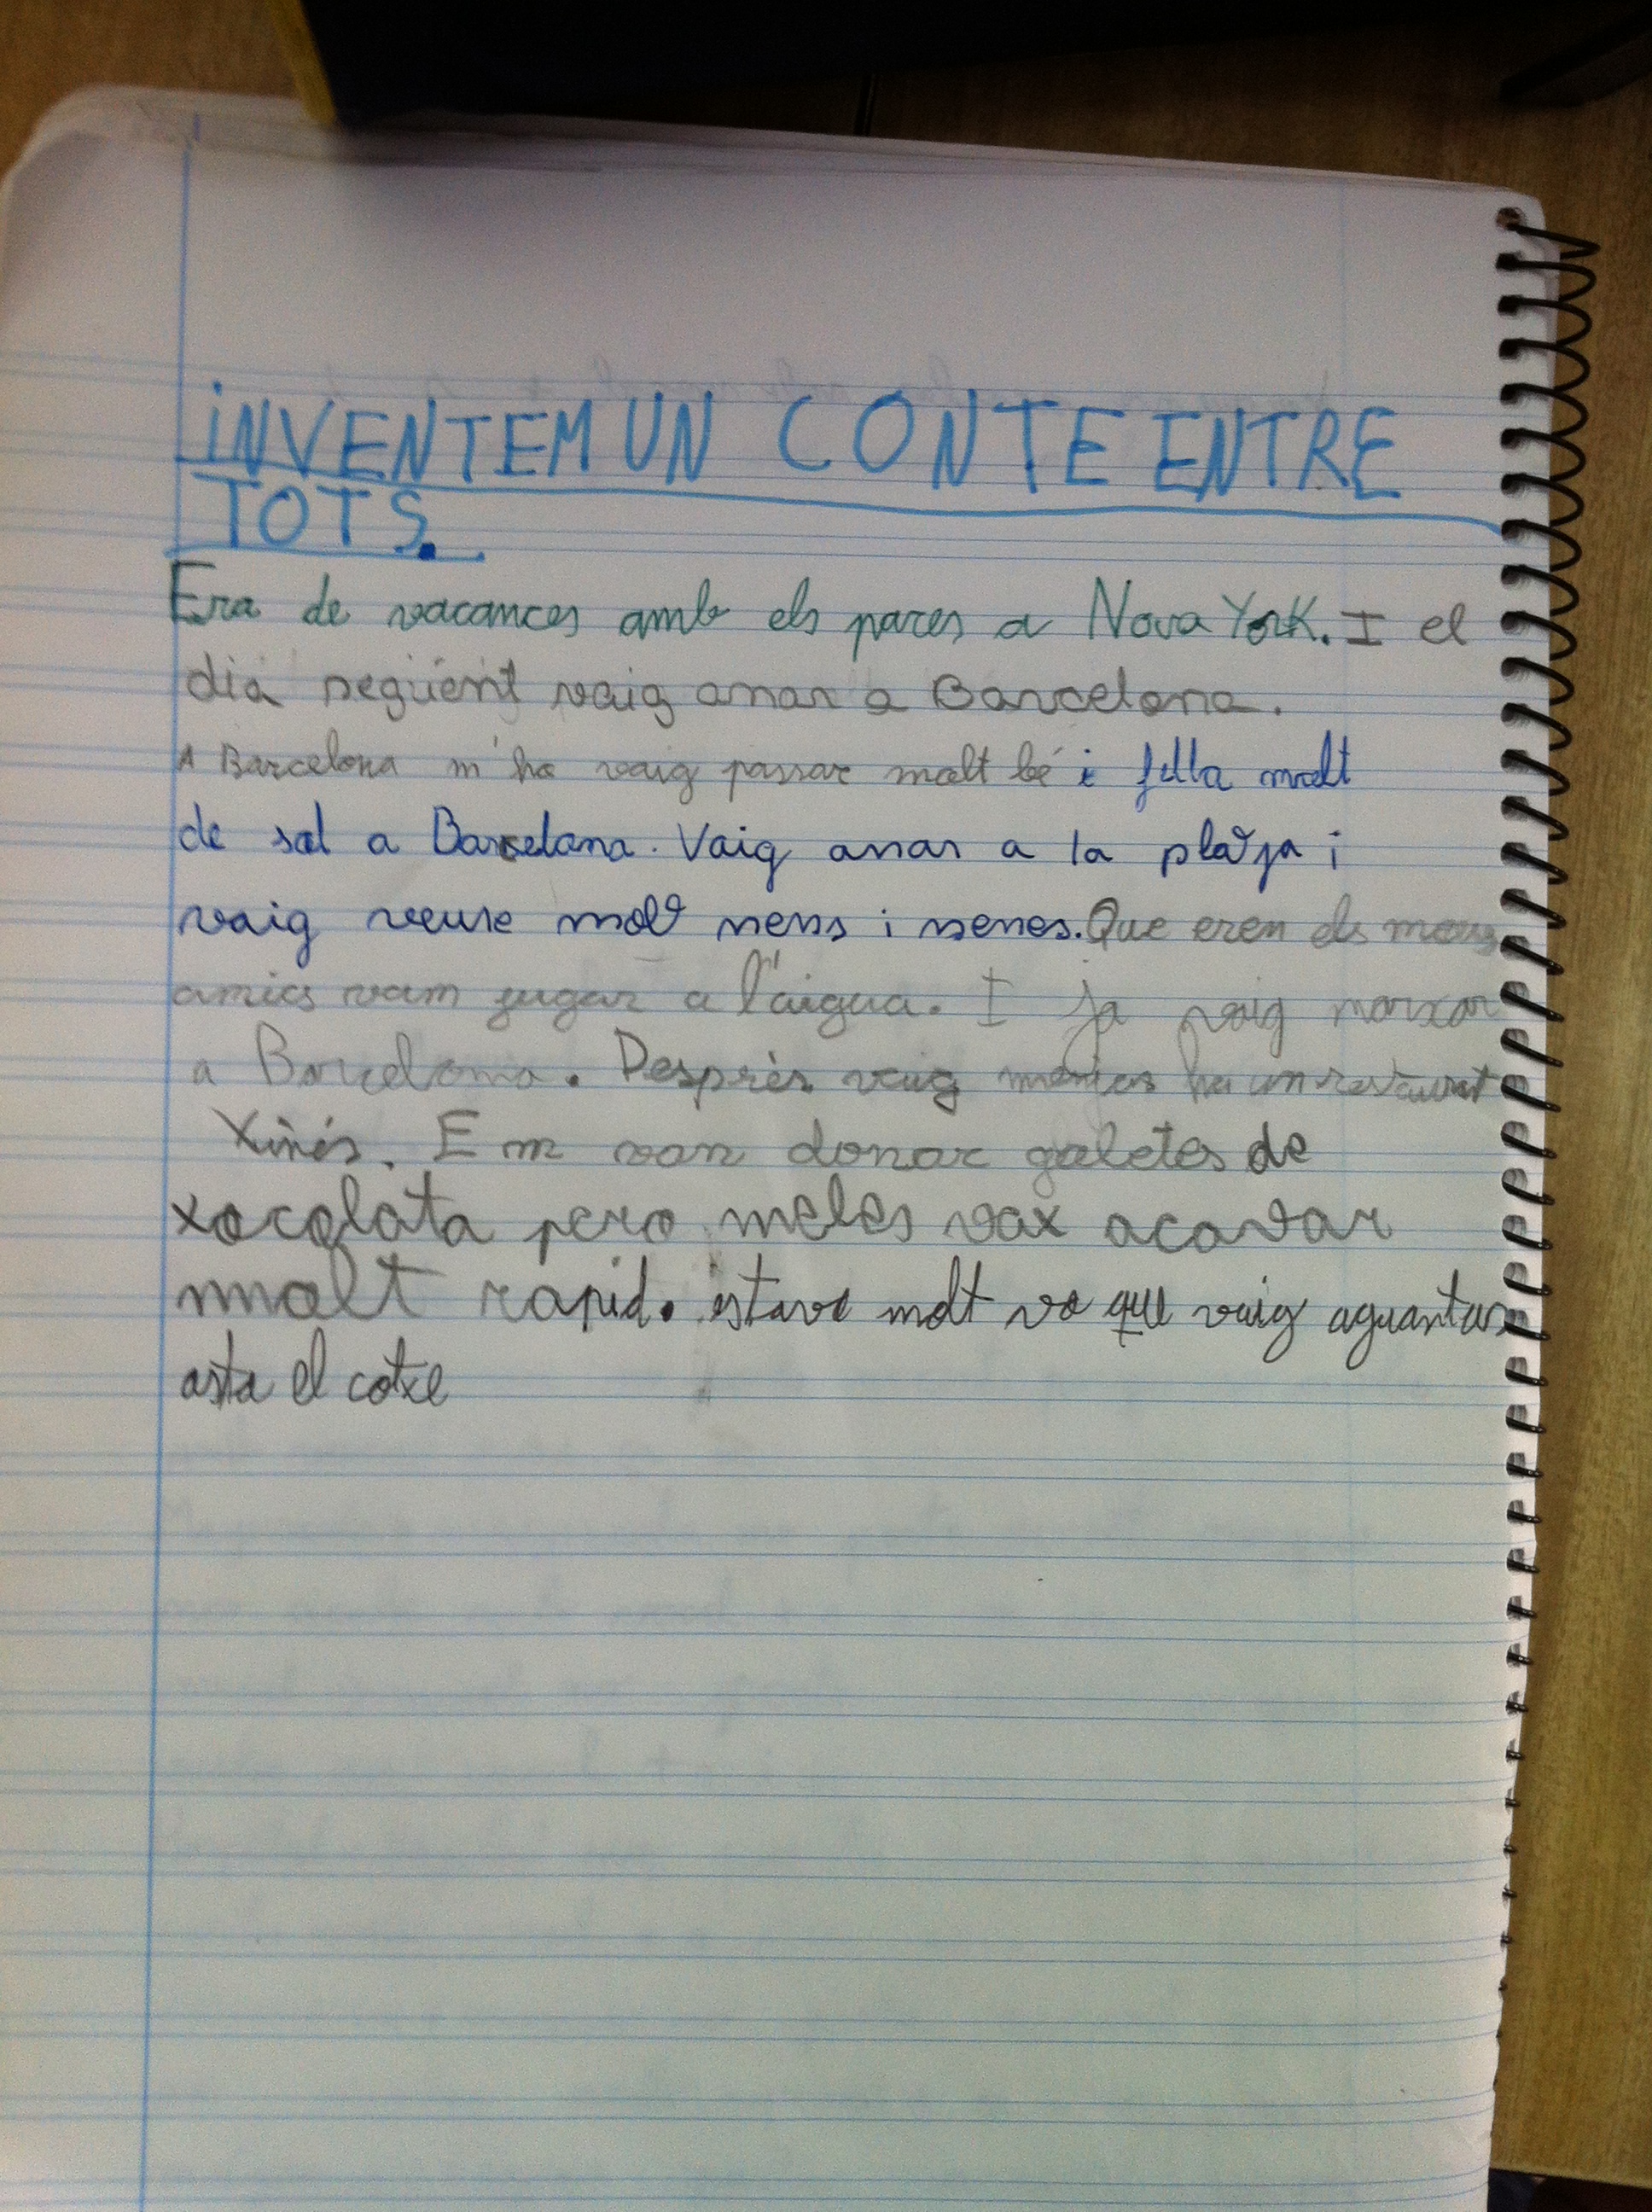 INVENTEM UN CONTE ENTRE
TOTS.
Era de vacances amb els pares a Nova York. I el
dia següent vaig anar a Barcelona.
A Barcelona m'ho vaig passar molt bé i fella molt
de sol a Barcelona. Vaig anar a la platja i
vaig veure molt nens i nenes. Que eren els meus
amics vam jugar a l'aigua. I ja vaig marxar
a Barcelona. Desprès vaig menjar ha un restaurat
Xinés. E m van donar galetes de
xocolata pero meles vax acavar
molt rapid. estava molt vo que vaig aguantar
asta el cotxe